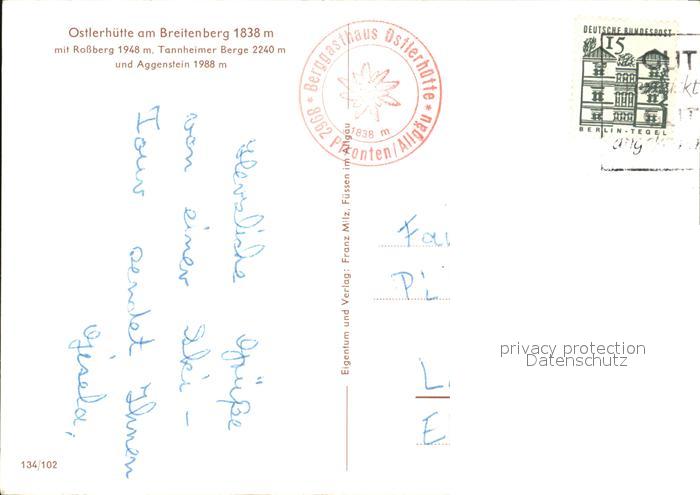 Ostlerhütte am Breitenberg 1838 m
mit Roßberg 1948 m, Tannheimer Berge 2240 m
und Aggenstein 1988 m
* Berggasthaus Ostlerhütte *
1838 m
8962 Pfronten/Allgäu
DEUTSCHE BUNDESPOST
15
BERLIN-TEGEL
GUT
Herzliche Grüße
von einer Ski-
Tour sendet Ihnen
Gisela,
Eigentum und Verlag: Franz Milz, Füssen im Allgäu
Fa
privacy protection
Datenschutz
134/102